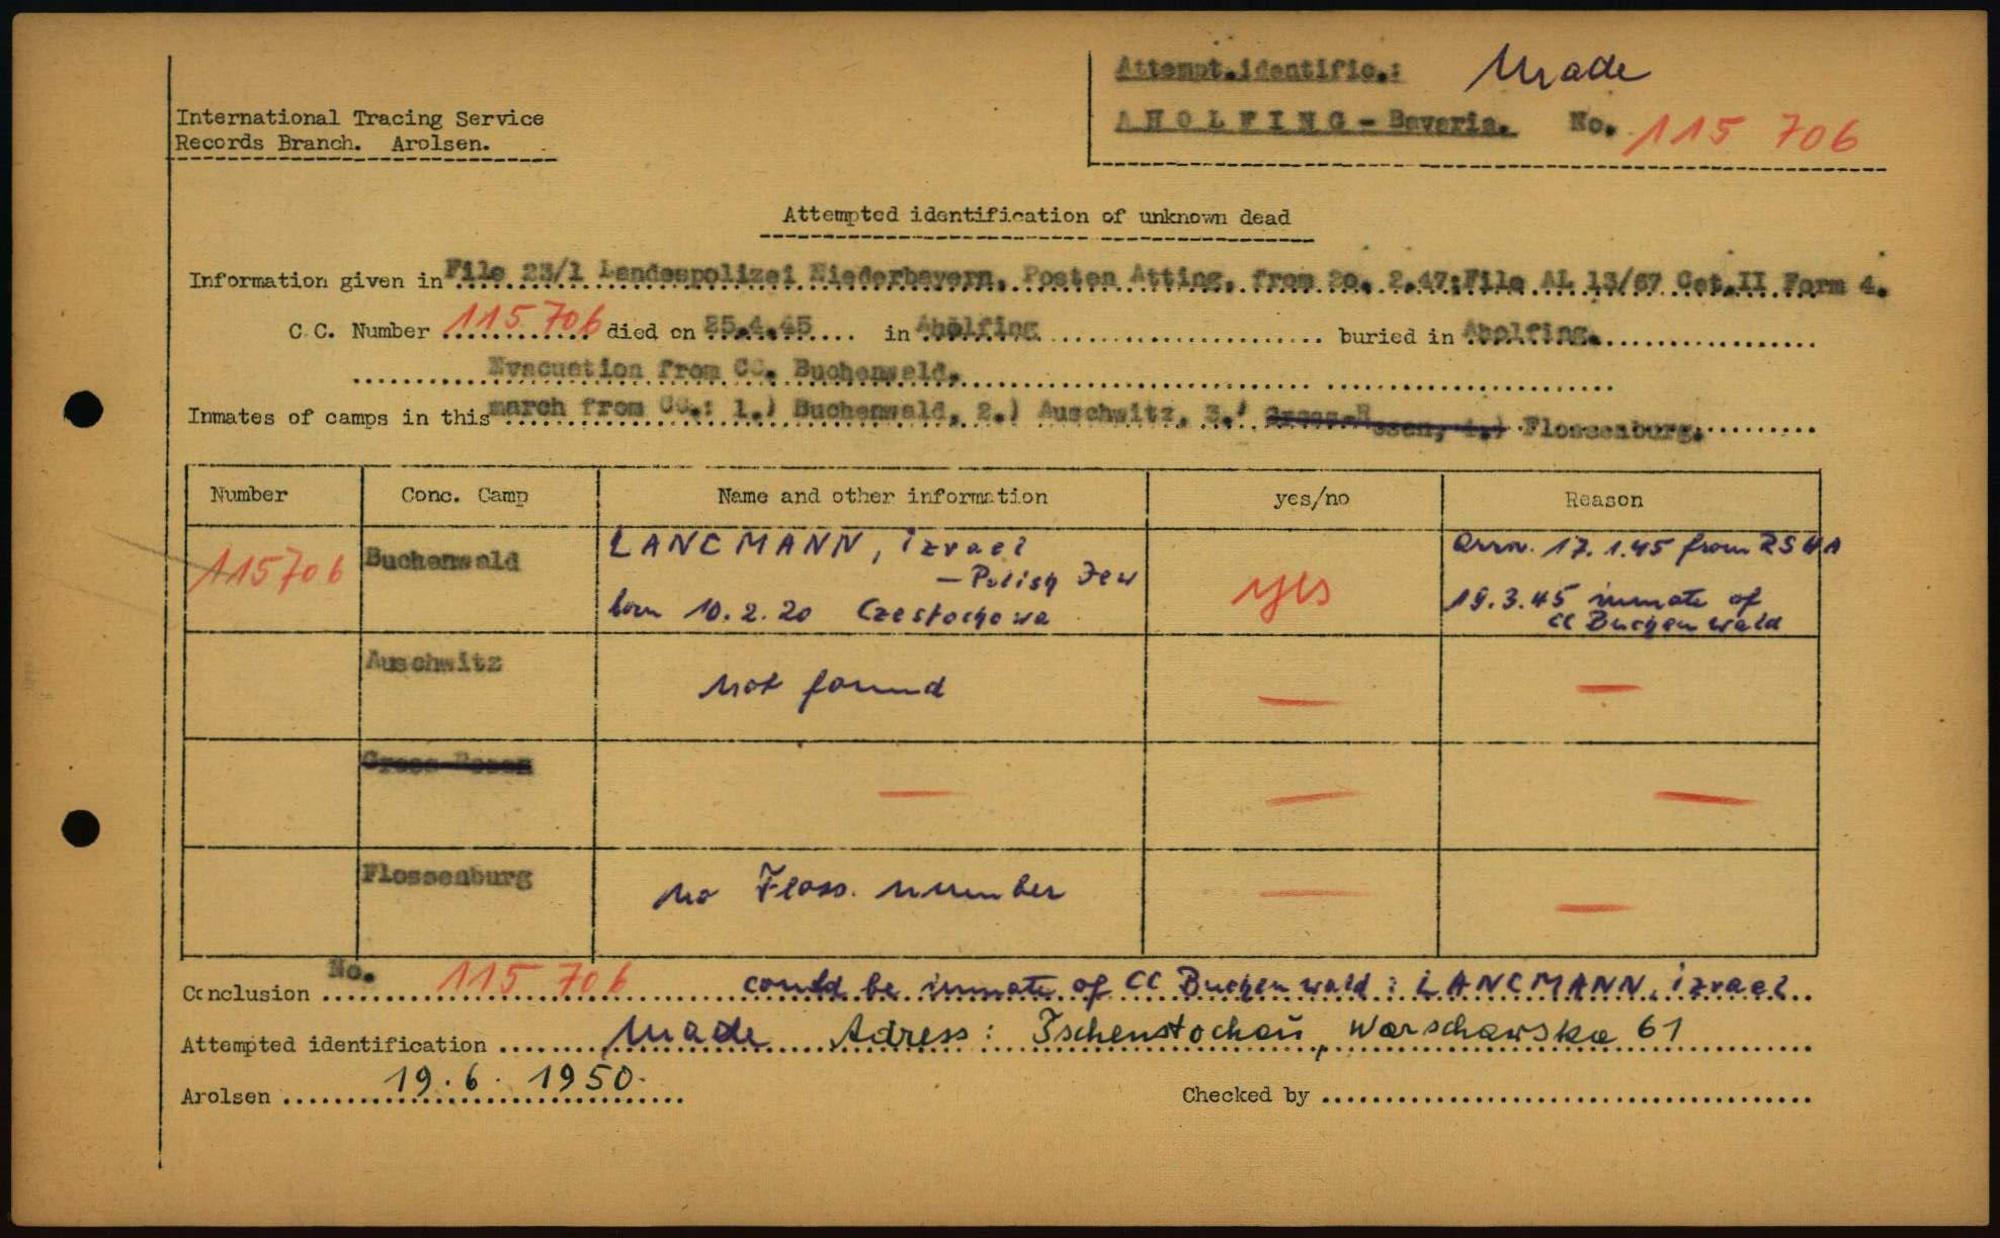 Attempt.identific.: Made
International Tracing Service
Records Branch. Arolsen.
AHOLFING - Bavaria. No. 115 706
Attempted identification of unknown dead
Information given in File 23/1 Landespolizei Niederbayern, Posten Atting, from 20. 2.47;File AL 13/67 Cat.II Form 4.
C.C. Number 115 706 died on 25.4.45 in Aholfing buried in Aholfing.
Evacuation from CC. Buchenwald.
Inmates of camps in this march from CC.: 1.) Buchenwald, 2.) Auschwitz, 3.) Gross-Rosen, 4.) Flossenburg.
Number Conc. Camp Name and other information yes/no Reason
115706 Buchenwald LANCMANN, izrael yes Arrv. 17.1.45 from RSHA
— Polish Jew
born 10.2.20 Czestochowa 19.3.45 inmate of
CC Buchenwald
Auschwitz not found — —
Gross-Rosen — — —
Flossenburg no Floss. number — —
Conclusion No. 115 706 could be inmate of CC Buchenwald : LANCMANN, izrael
Attempted identification made Adress: Tschenstochau, Warschawska 61
Arolsen 19.6.1950. Checked by